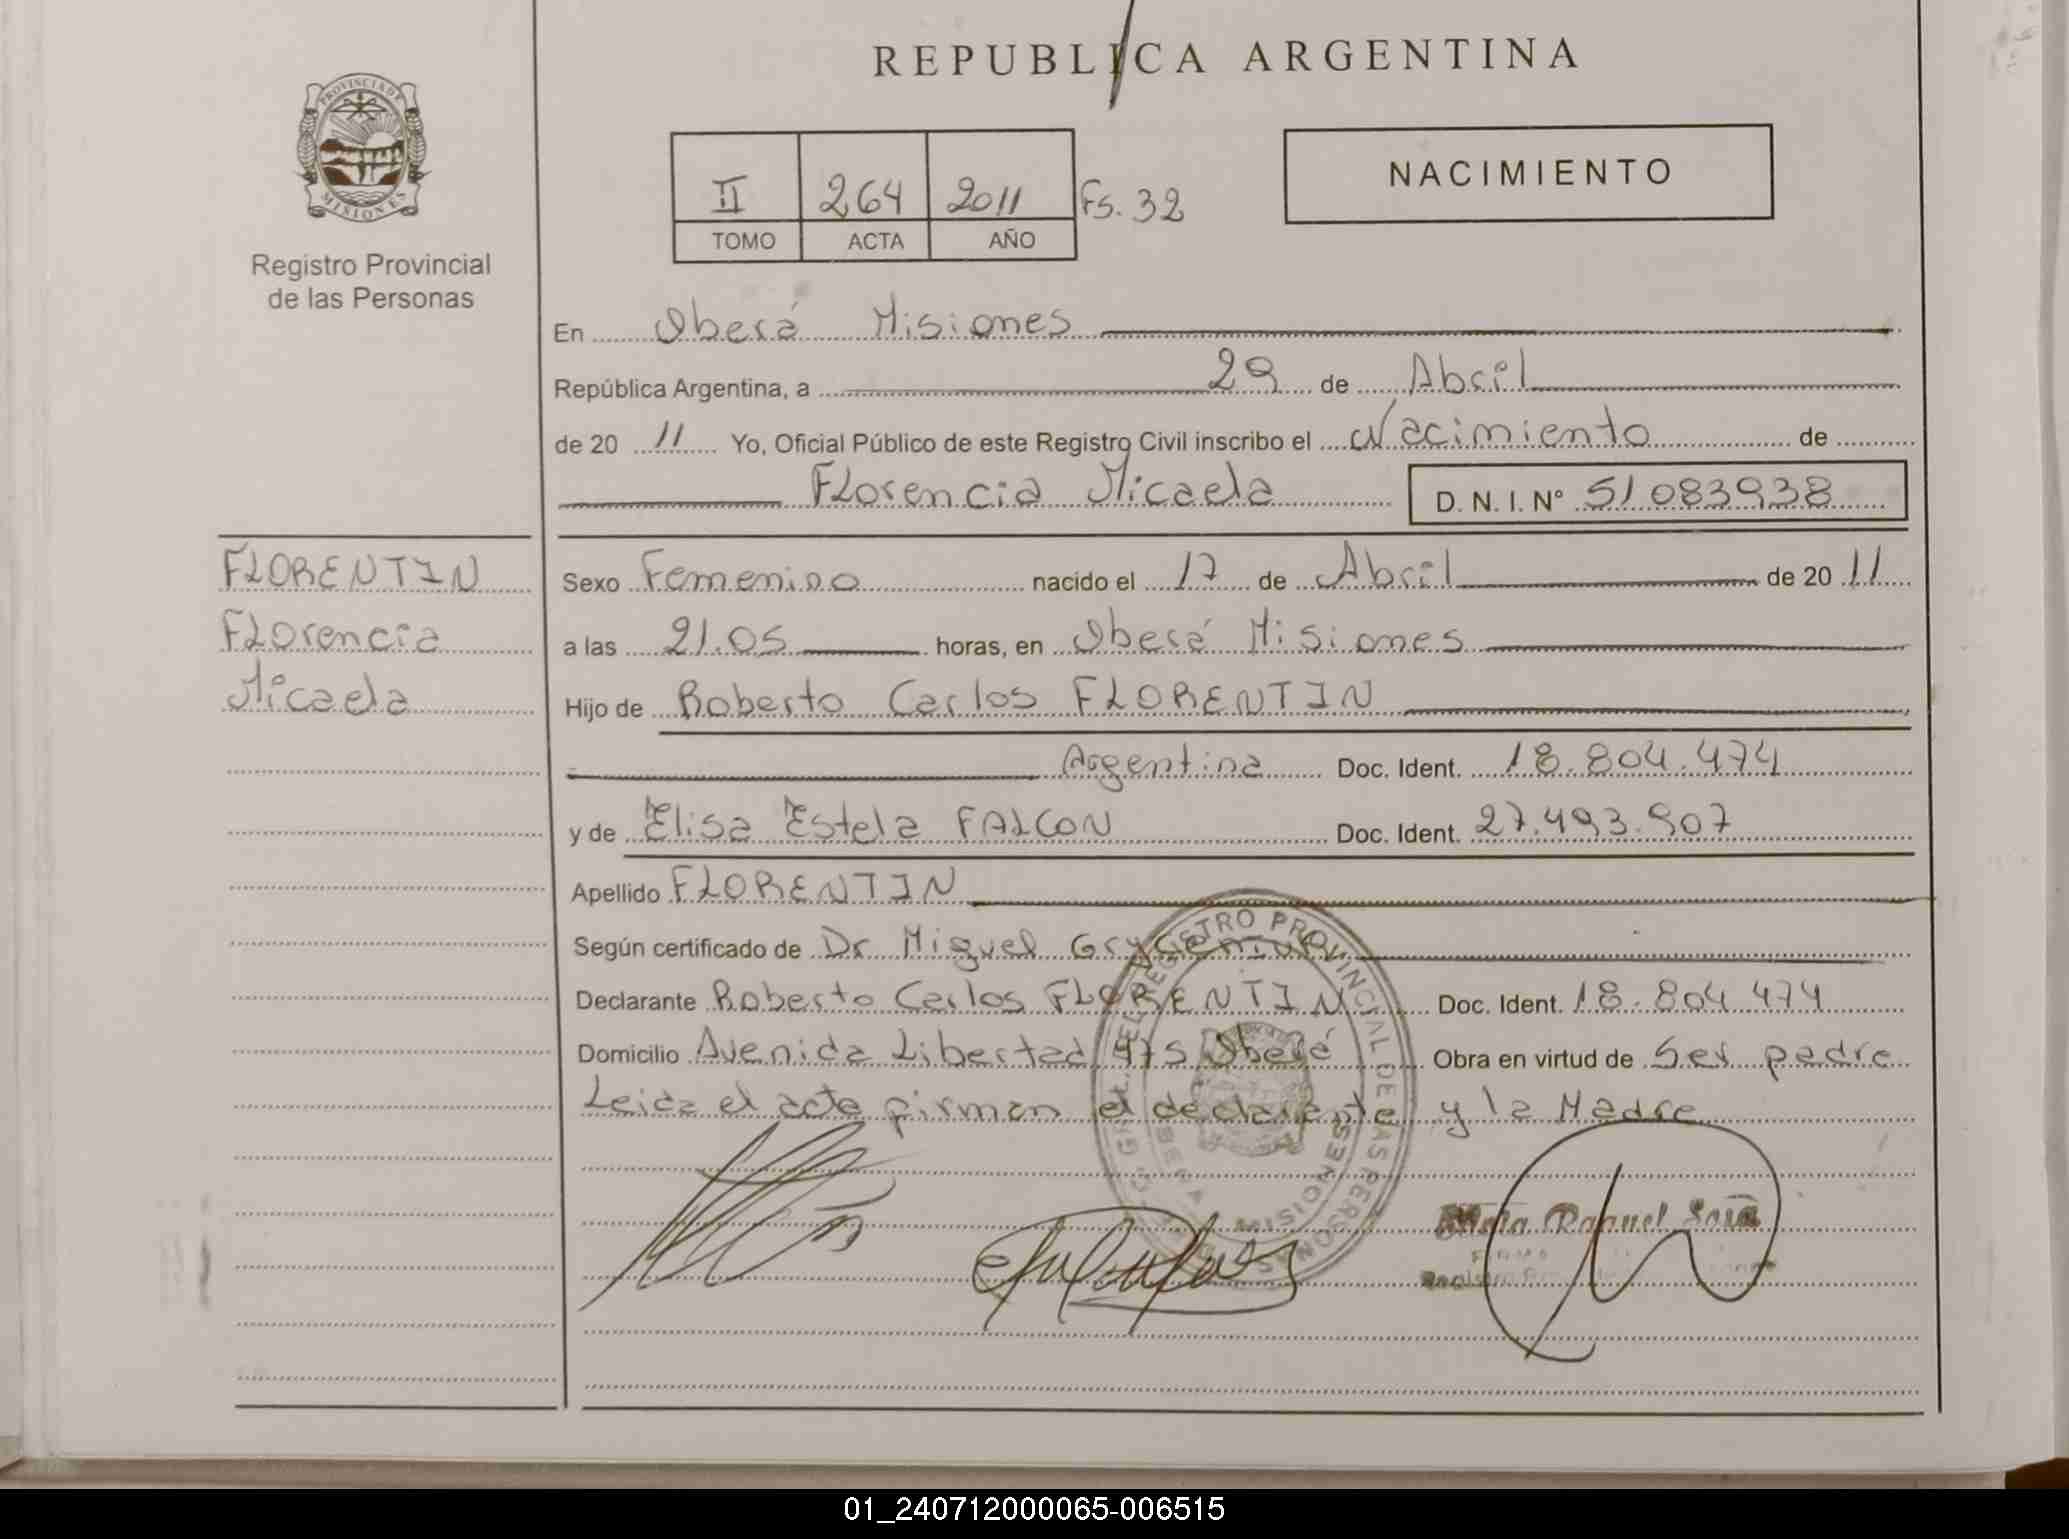 REPUBLICA ARGENTINA
PROVINCIA DE
MISIONES
Registro Provincial
de las Personas
II 264 2011 Fs. 32
TOMO ACTA AÑO
NACIMIENTO
En Oberá Misiones
República Argentina, a 29 de Abril
de 20 11 Yo, Oficial Público de este Registro Civil inscribo el Nacimiento de
Florencia Micaela D. N. I. N° 51.083938
FLORENTIN
Florencia
Micaela
Sexo Femenino nacido el 17 de Abril de 20 11
a las 21.05 horas, en Oberá Misiones
Hijo de Roberto Carlos FLORENTIN
Argentina Doc. Ident. 18.804.474
y de Elisa Estela FALCON Doc. Ident. 27.493.907
Apellido FLORENTIN
Según certificado de Dr. Miguel
Declarante Roberto Carlos FLORENTIN Doc. Ident. 18.804.474
Domicilio Avenida Libertad 475 Oberá Obra en virtud de Ser padre
Leida el acta firman el declarante y la Madre
REGISTRO PROVINCIAL DE LAS PERSONAS
OBERA MISIONES
Raquel
01_240712000065-006515